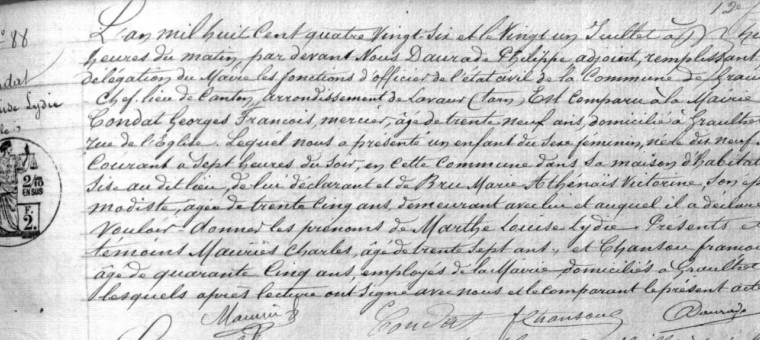 12e
N° 88
L'an mil huit Cent quatre Vingt-Six et le Vingt un Juillet à
heures du matin, par devant Nous Daurade Philippe, adjoint, remplissant
délégation du Maire les fonctions d'officier de l'état civil de la Commune de Grau
Chef-lieu de Canton, arrondissement de Lavaur (tarn) Est Comparu à la Mairie
Condat Georges François, mercier, âgé de trente neuf ans, domicilié à Graulhet
rue de l'Eglise. Lequel nous a présenté un enfant du Sexe feminin, née le du neuf
Courant a Sept heures du Soir, en cette Commune dans sa maison d'habitat
Sise au dit lieu, de lui déclarant et de Bru Marie Athenaïs Victorine, Son ép
modiste, agée de trente Cinq ans, demeurant avec lui et auquel il a déclaré
Vouloir donner les prénoms de Marthe Louise Lydie. Présents et
témoins Mauriès Charles, âgé de trente Sept ans, et Chanson françoi
âgé de quarante Cinq ans, employés de la Mairie domiciliés à Graulhet
lesquels après lecture ont Signé avec nous et le comparant le présent acte
Condat
ude Lydie
2/10
2.
Mauriès Condat Chanson Daurade